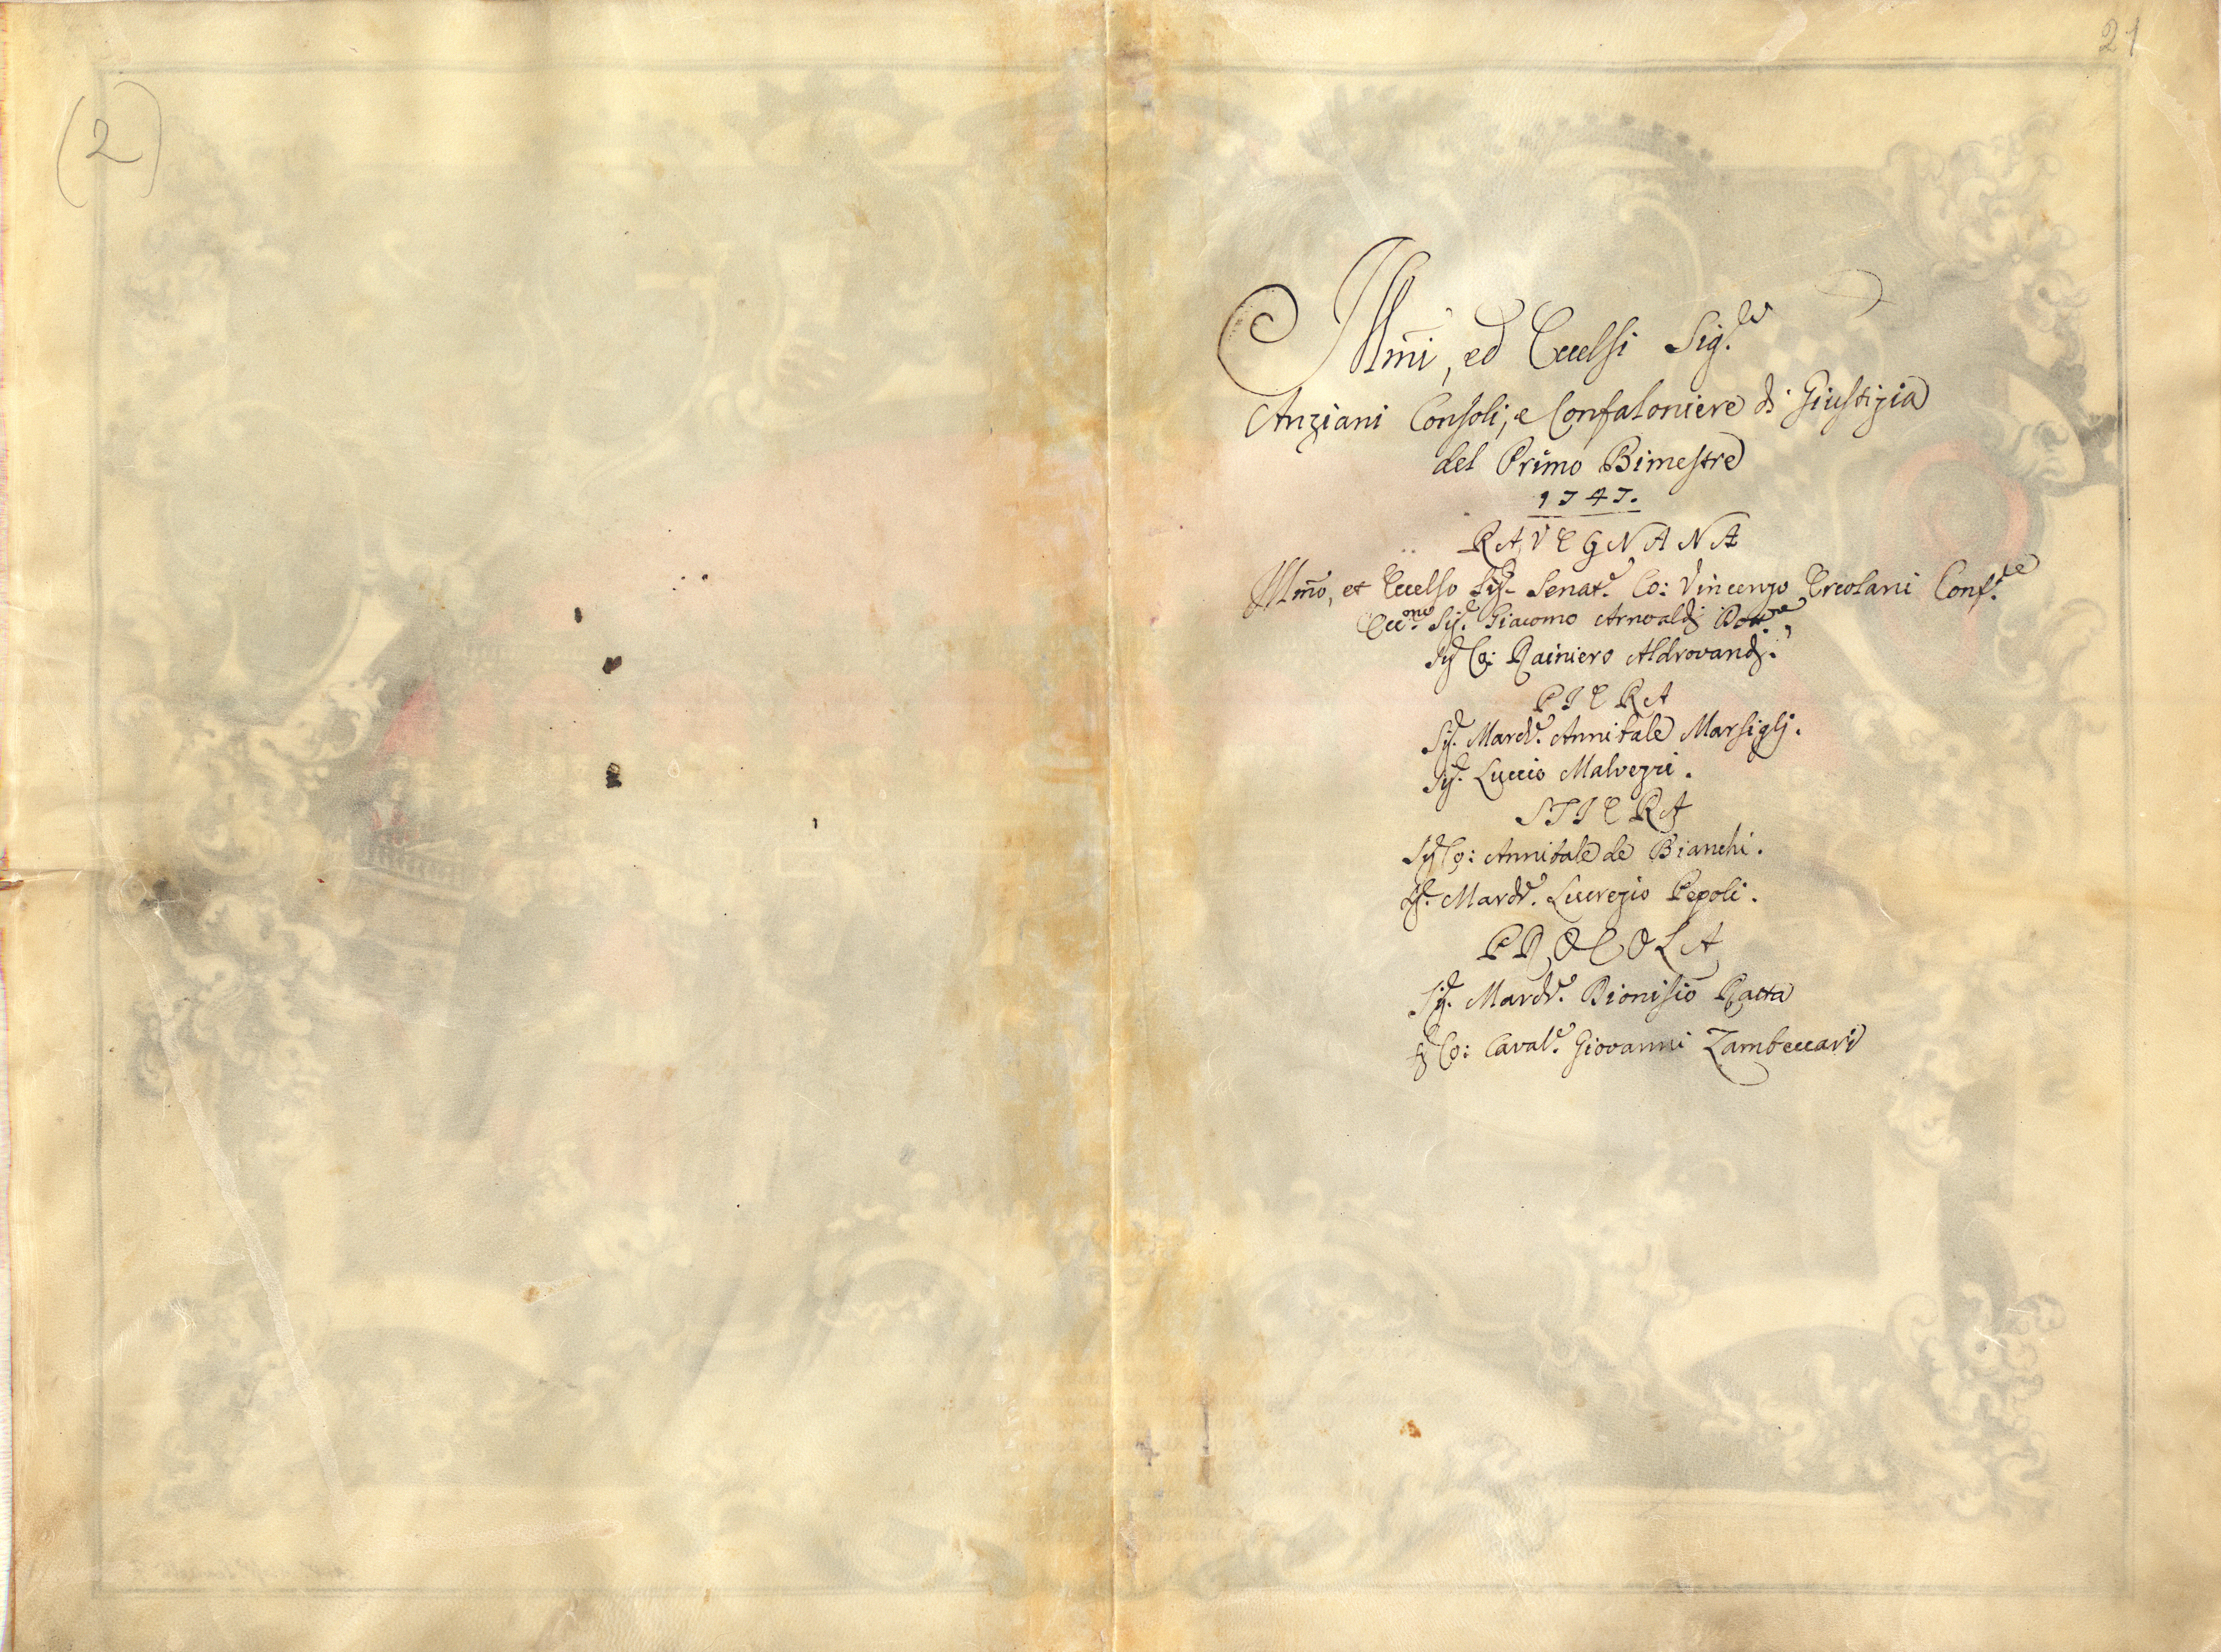 (2)
21
Illmi, ed Eccelsi Sig.ri
Anziani Consoli, e Confaloniere di Giustizia
del Primo Bimestre
1747.
RAVEGNANA
Illmo, et Eccelso Sig.r Senat.e Co: Vincenzo Ercolani Conf.re
Ecc.mo Sig.r Giacomo Arnoaldi Dott.re
Sig.r Co: Rainiero Aldrovandi.
PIERA
Sig.r March.e Annibale Marsiglj.
Sig.r Luccio Malvezzi.
STIERA
Sig.r Co: Annibale de Bianchi.
Sig.r March.e Lucrezio Pepoli.
PROCOLA
Sig.r March.e Dionisio Ratta
Sig.r Co: Caval.e Giovanni Zambeccari